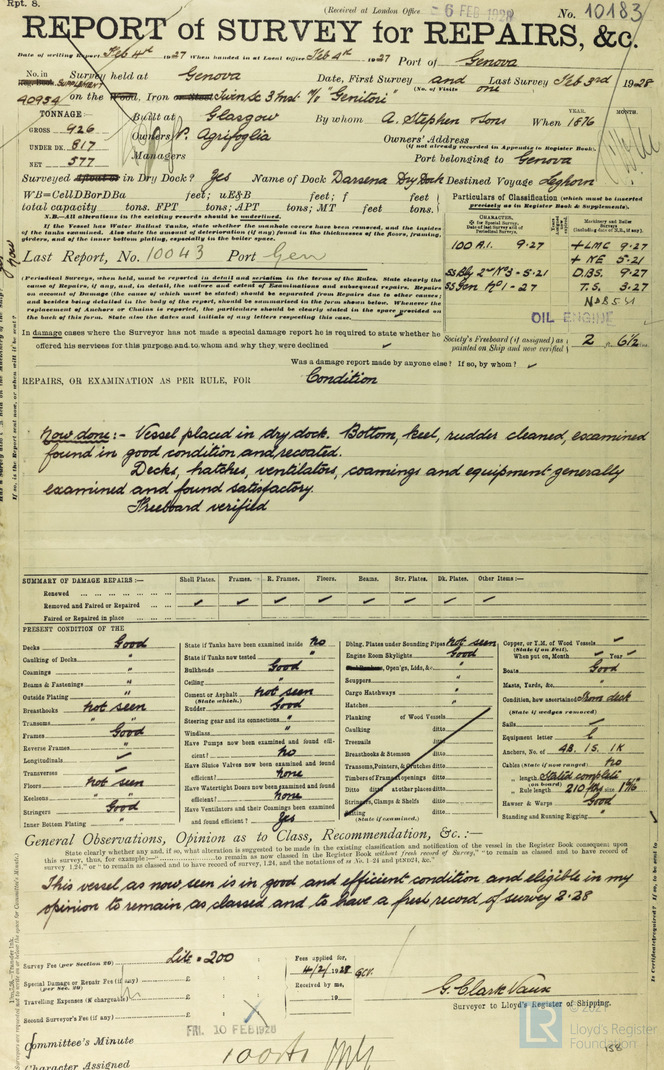 Rpt. 8.
(Received at London Office 6 FEB 1928
No. 10183
REPORT of SURVEY for REPAIRS, &c.
Date of writing Report Feb 4th 1927 When handed in at Local Office Feb 4th 1927 Port of Genova
No. in Survey held at Genova Date, First Survey and Last Survey Feb 3rd 1928
(No. of Visits one)
40934 on the Wood, Iron or Steel Twin Sc 3 mst M/V "Genitori"
TONNAGE:— Built at Glasgow By whom A. Stephen & Sons When 1876
YEAR. MONTH.
GROSS 926
UNDER DK. 817
NET 577
Owners N. Agrifoglia Owners' Address
(if not already recorded in Appendix to Register Book).
Managers Port belonging to Genova
Surveyed afloat or in Dry Dock? Yes Name of Dock Darsena Dry Dock Destined Voyage Leghorn
WB=CellDBorDBa feet; uE&B feet; f feet
total capacity tons. FPT tons; APT tons; MT feet tons.
N.B.—All alterations in the existing records should be underlined.
If the Vessel has Water Ballast Tanks, state whether the manholes covers have been removed, and the insides
of the tanks examined. Also state the amount of deterioration (if any) found in the thicknesses of the floors, framing,
girders, and of the inner bottom plating, especially in the boiler space.
Particulars of Classification (which must be inserted
precisely as in Register Book & Supplements).
CHARACTER.
100 A.1. 9·27 +LMC 9·27
+ NE 5·21
SS Bly 2nd No3 - 5·21 D.B.S. 9·27
SS Gen No1 - 27 T.S. 3·27
OIL ENGINE
Last Report, No. 10043 Port Gen
(Periodical Surveys, when held, must be reported in detail and seriatim in the terms of the Rules. State clearly the
cause of Repairs, if any, and, in detail, the nature and extent of Examinations and subsequent repairs. Repairs
on account of Damage (the cause of which must be stated) should be separated from Repairs due to other causes;
and besides being detailed in the body of the report, should be summarised in the form shown below. Whenever the
replacement of Anchors or Chains is reported, the particulars should be clearly stated in the space provided on
the back of this form. State also the dates and initials of any letters respecting this case.
Society's Freeboard (if assigned) as
painted on Ship and now verified 2 6½
In damage cases where the Surveyor has not made a special damage report he is required to state whether he
offered his services for this purpose and to whom and why they were declined
Was a damage report made by anyone else? If so, by whom?
REPAIRS, OR EXAMINATION AS PER RULE, FOR Condition
Now done:- Vessel placed in dry dock. Bottom, keel, rudder cleaned, examined
found in good condition and recoated.
Decks, hatches, ventilators, coamings and equipment generally
examined and found satisfactory.
Freeboard verified
SUMMARY OF DAMAGE REPAIRS:— Shell Plates. Frames. R. Frames. Floors. Beams. Str. Plates. Dk. Plates. Other Items:—
Renewed
Removed and Faired or Repaired
Faired or Repaired in place
PRESENT CONDITION OF THE
Decks Good
Caulking of Decks "
Coamings "
Beams & Fastenings "
Outside Plating "
Breasthooks not seen
Transoms " "
Frames Good
Reverse Frames "
Longitudinals
Transverses
Floors not seen
Keelsons " "
Stringers Good
Inner Bottom Plating "
State if Tanks have been examined inside No
State if Tanks now tested "
Bulkheads Good
Ceiling "
Cement or Asphalt not seen
(State which.)
Rudder Good
Steering gear and its connections "
Windlass "
Have Pumps now been examined and found efficient? No
Have Sluice Valves now been examined and found efficient? none
Have Watertight Doors now been examined and found efficient? none
Have Ventilators and their Coamings been examined and found efficient? Yes
Dblng. Plates under Sounding Pipes not seen
Engine Room Skylights Good
Open'gs, Lids, &c. "
Scuppers "
Cargo Hatchways "
Hatches "
Planking of Wood Vessels
Caulking ditto
Treenails ditto
Breasthooks & Stemson ditto
Transoms, Pointers, & Crutches ditto
Timbers of Frame at openings ditto
Ditto at other places ditto
Stringers, Clamps & Shelfs ditto
Salting ditto
(State if examined.)
Copper, or Y.M. of Wood Vessels
(State if on Felt).
When put on, Month Year
Boats Good
Masts, Yards, &c. "
Condition, how ascertained From deck
(State if wedges removed)
Sails
Equipment letter
Anchors, No. of 4B. 1S. 1K
Cables (State if now ranged) No
" length Stated complete
(on board)
" Rule length 210 fms size 1 7/16
Hawser & Warps Good
Standing and Running Rigging "
General Observations, Opinion as to Class, Recommendation, &c.:—
State clearly whether any and, if so, what alteration is suggested to be made in the existing classification and notification of the vessel in the Register Book consequent upon
this survey, thus, for example:—" to remain as now classed in the Register Book without fresh record of Survey," "to remain as classed and to have record of
survey 1,24," or "to remain as classed and to have record of survey, 1,24, and the notations of ss No. 1-24 and pt.ND24, &c."
This vessel as now seen is in good and efficient condition and eligible in my
opinion to remain as classed and to have a fresh record of survey 2·28
Survey Fee (per Section 29) Lit. 200
Special Damage or Repair Fee (if any) £
(per Sec. 29)
Travelling Expenses (if chargeable) £
Second Surveyor's Fee (if any) £
Fees applied for,
4/2/1928
Received by me,
19
G. Clark Vaux
Surveyor to Lloyd's Register of Shipping.
FRI. 10 FEB 1928
Committee's Minute
Character Assigned 100A1
LR
Lloyd's Register
Foundation
158